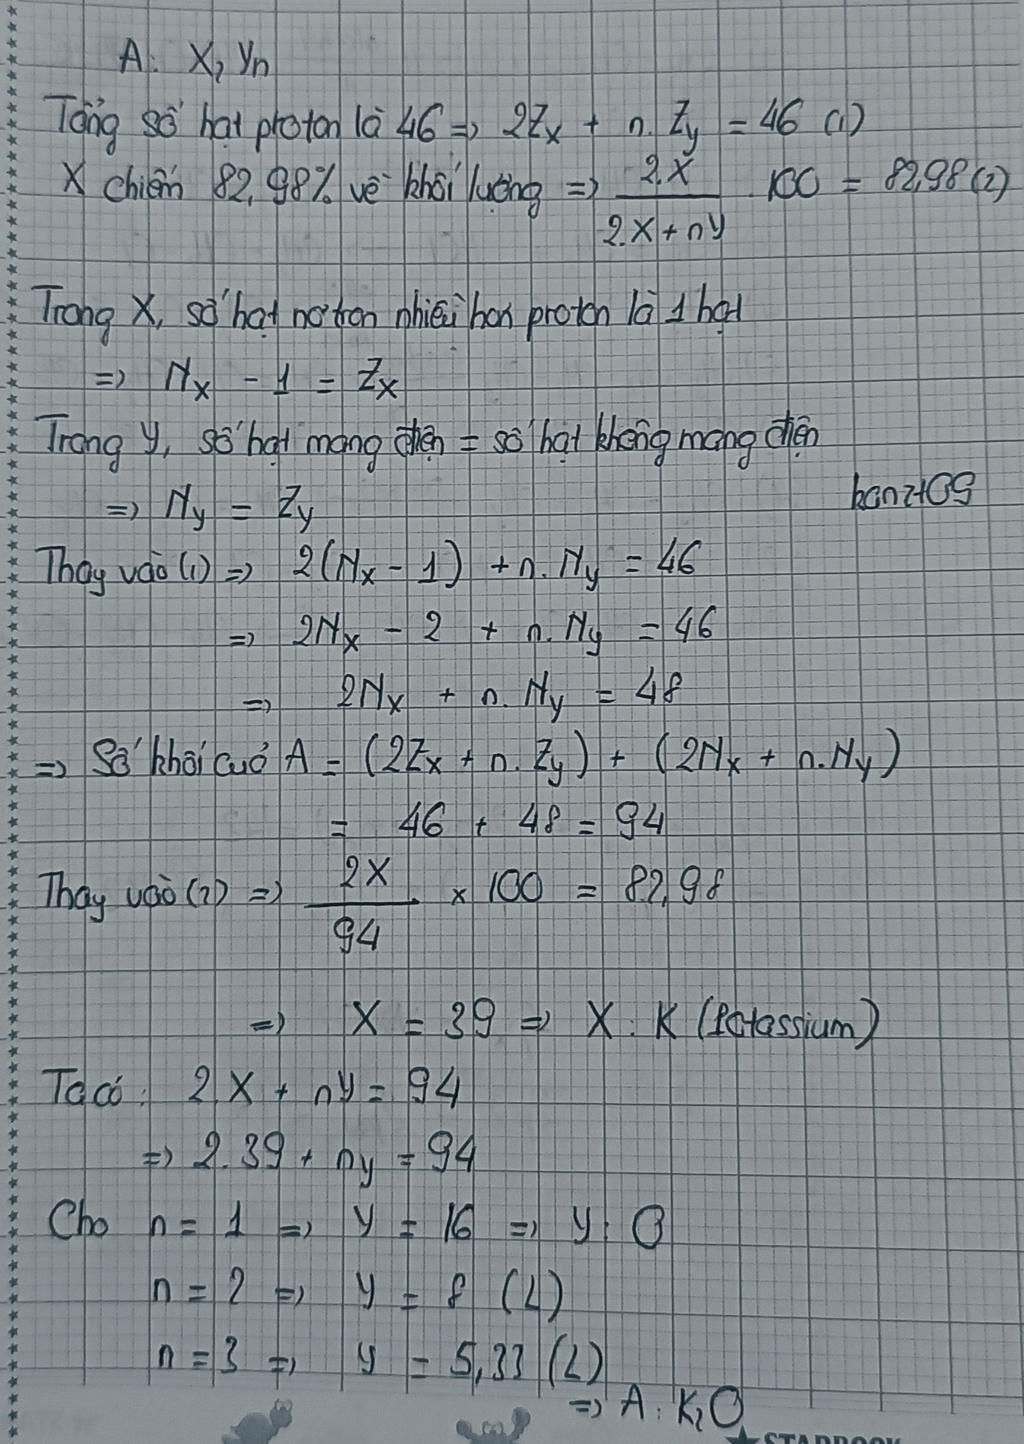 A: X₂Yn
Tổng số hạt proton là 46 => 2Zx + n.Zy = 46 (1)
X chiếm 82,98% về khối lượng => 2.X / (2.X + nY) . 100 = 82,98 (2)
Trong X, số hạt nơtron nhiều hơn proton là 1 hạt
=> Nx - 1 = Zx
Trong Y, số hạt mang điện = số hạt không mang điện
=> Ny = Zy
Thay vào (1) => 2(Nx - 1) + n.Ny = 46
=> 2Nx - 2 + n.Ny = 46
=> 2Nx + n.Ny = 48
=> Số khối của A = (2Zx + n.Zy) + (2Nx + n.Ny)
= 46 + 48 = 94
Thay vào (2) => 2X / 94 × 100 = 82,98
=> X = 39 => X : K (Potassium)
Ta có: 2.X + nY = 94
=> 2.39 + ny = 94
Cho n = 1 => y = 16 => y: O
n = 2 => y = 8 (L)
n = 3 => y = 5,33 (L)
=> A: K₂O